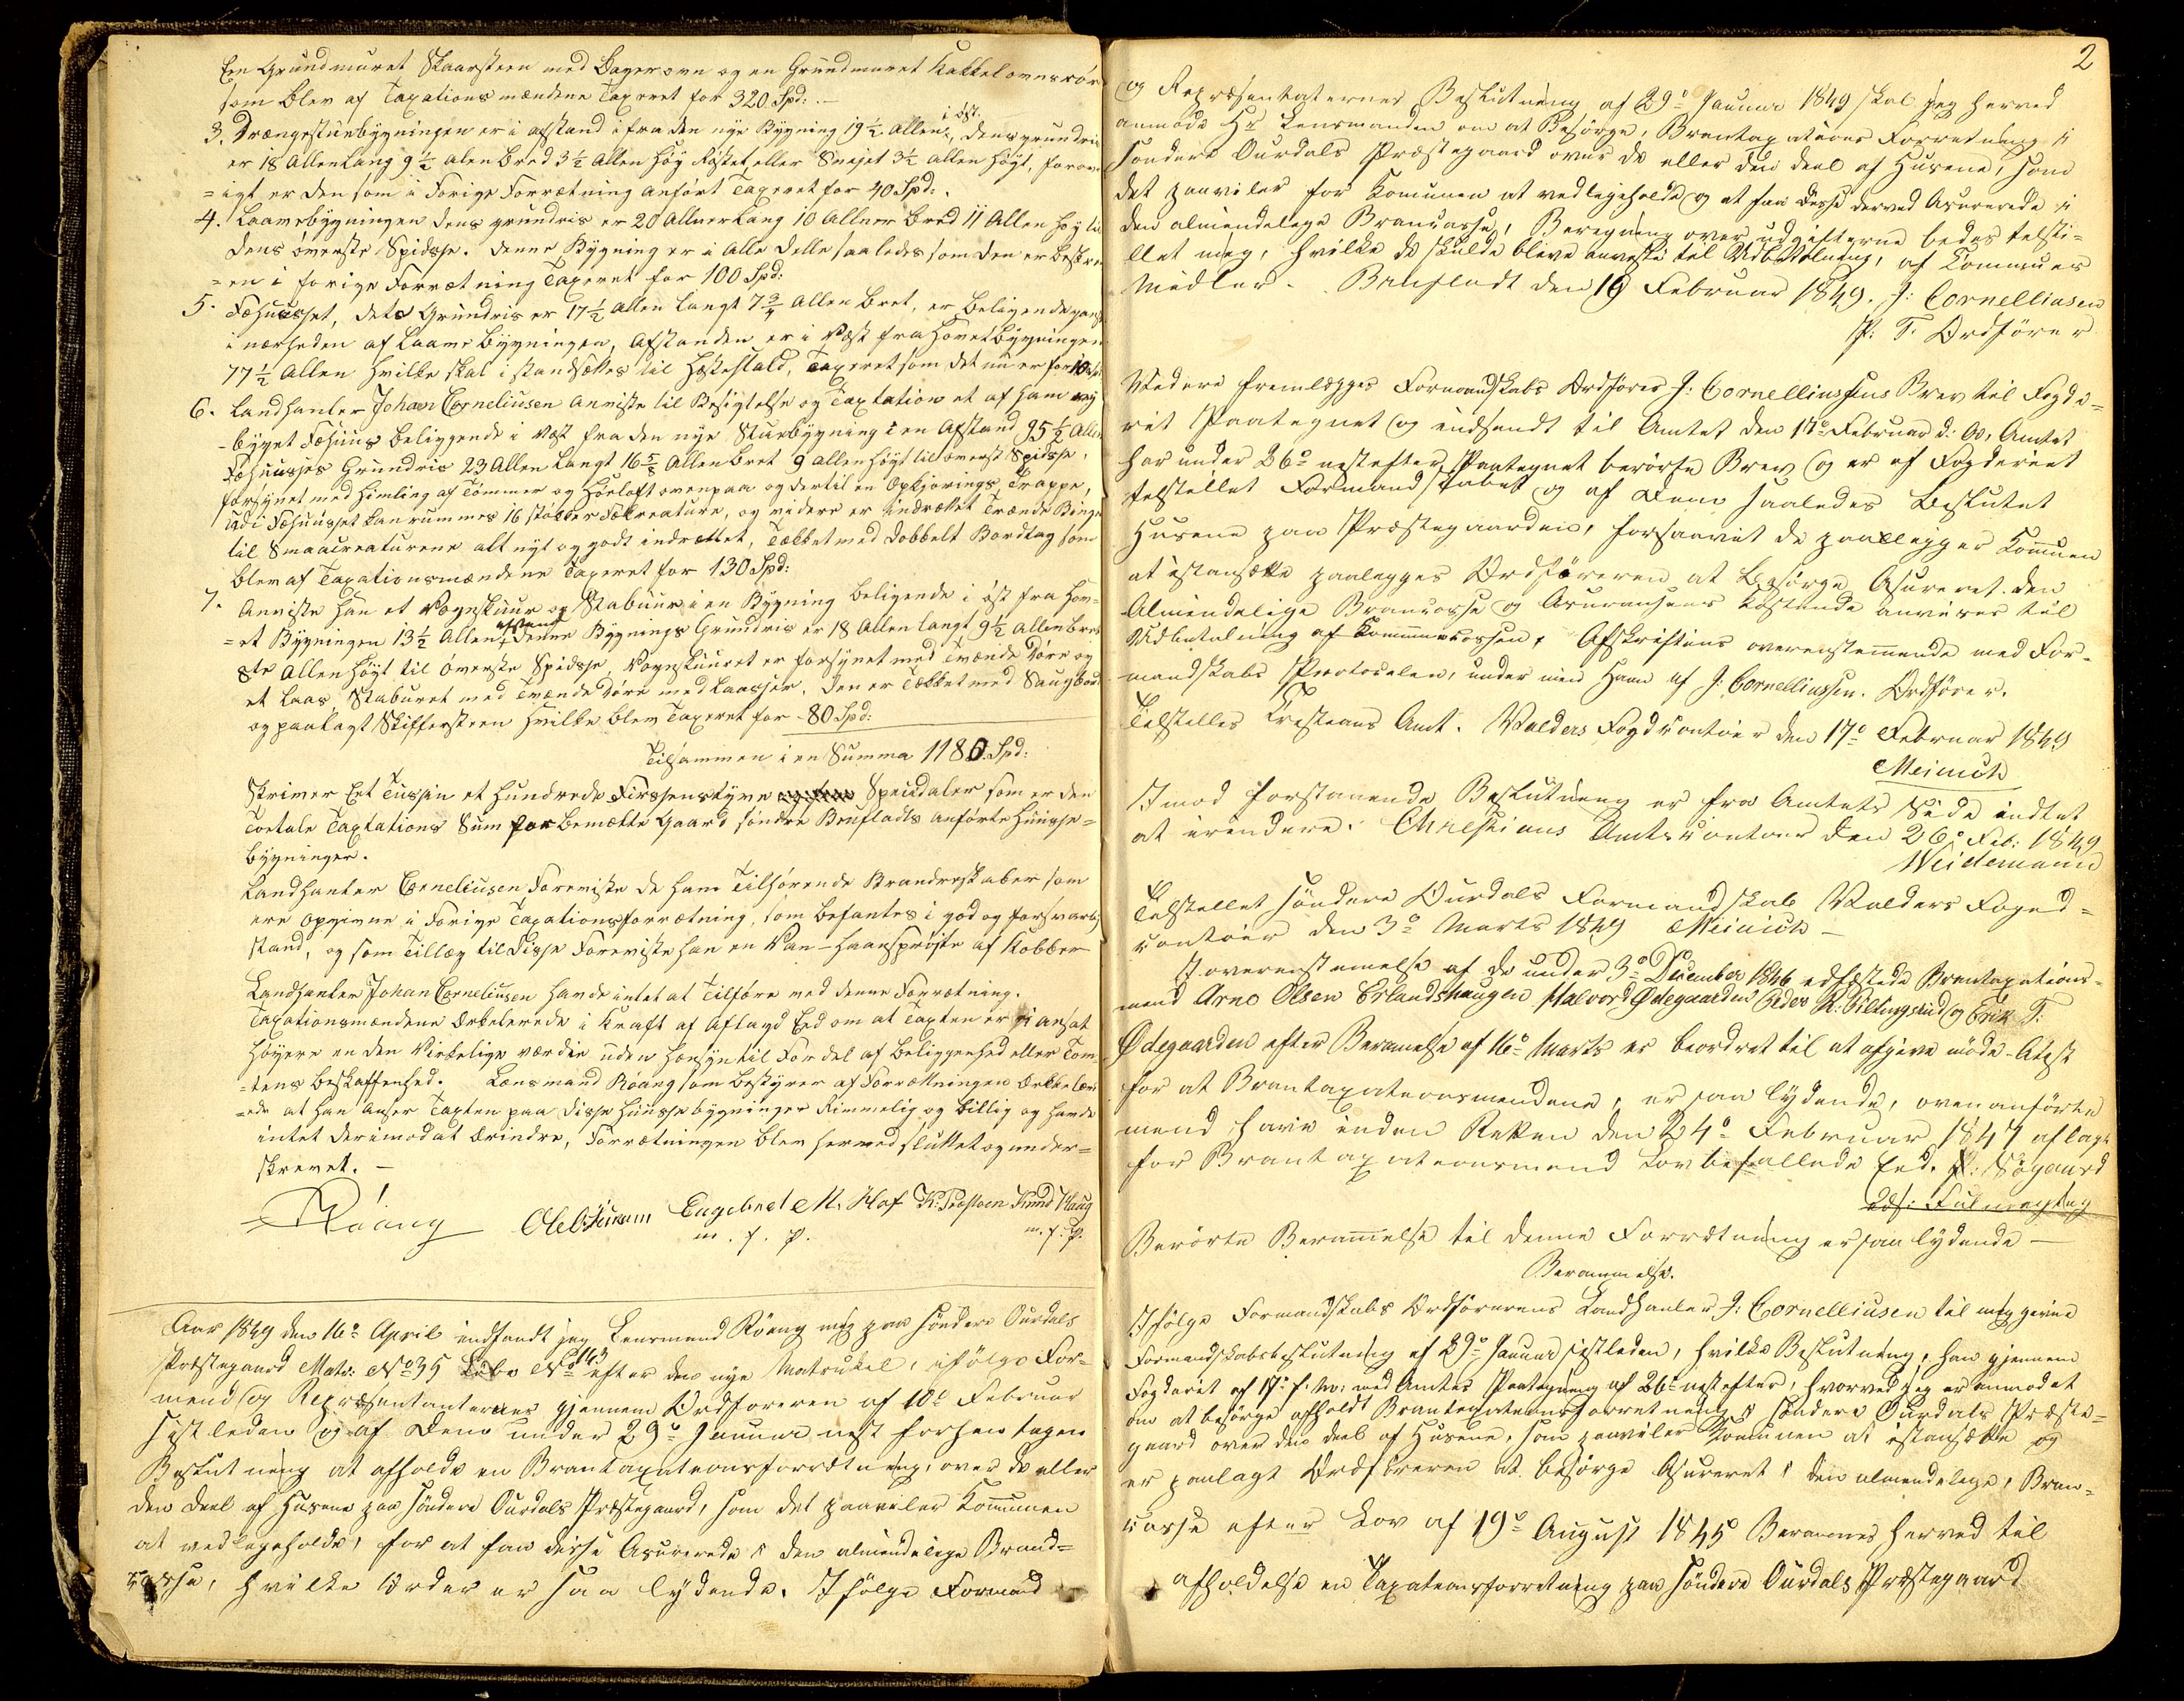 Een Grundmuret Skaarsteen med Bagerovn og en Grundmuret Kakkelovnsrör
som blev af Taxationsmændene Taxeret for 320 Spd: .-
3. Drængestuebygningen er i afstand ifra den nye Bygning 19½ Allen i öst., dens grundris
er 18 Allen Lang 9½ alen Bred 3½ Allen Höy Röstet eller Snejet 3½ Allen höyt, forov
=igt er den som i Forige Forretning anfört Taxeret for 40 Spd: .
4. Laavebygningen dens grundris er 20 Allner Lang 10 Allner Bred 11 Allen Höy til
dens överste Spidsse. denne Bygning er i Alle Delle saaledes som den er Beskre
=en i forige Forretning Taxeret for 100 Spd:
5. Fæhuusset, dets Grundris er 17½ Allen Langt 7¾ Allen Bret, er Beligende gansk
i nærheden af Laave Bygningen, Afstanden er i Væst fra Hovetbygningen
77½ Allen Hvilke skal i standsættes til Hestestald, Taxeret som det nu er for 10 Spd
6. Landhanler Johan Corneliusen anviste til Besigtelse og Taxtation et af ham ny
-byget Fæhuus beliggende i Væst fra den nye Stuebygning i en Afstand 95½ Allen
Fæhuusses Grundris 23 Allen Langt 16⅝ Allen Bret 9 allen höyt til överst Spidsse,
forsynet med Himling af Tömmer og Höeloft ovenpaa og dertil en Opkjörings Trappe,
udi Fæhuusset kan rummes 16 stökker Fækreature, og videre er indrættet Trænde Binge
til Smaacreaturene alt nyt og godt indrettet, Tækket med dobbelt Bordtag som
blev af Taxationsmændene Taxeret for 130 Spd:
7. Anviste han et Vognskuur og Stabuur i en Bygning beligende i öst fra Hov=
=et Bygningen 13½ Allen afstand denne Bygnings Grundris er 18 Allen langt 9½ Allen bret
8te Allen Höyt til överste Spidsse, Vognskuuret er forsynet med Tvænde Döre og
et Laas, Staburet med Tvænde Döre med Laasser. den er Tækket med Saugbord
og paalagt Skiffersteen Hvilke blev Taxeret for - 80 Spd:
Tilsammen i en Summa 1180. Spd:
Skriver Eet Tussin et hundrede Firssenstyve Speiedaler som er den
Toetale Taxtations Sum for bemælte Gaard söndre Brufladts anförte Huusse=
bygninger.
Landhanler Corneliusen Foreviste de ham Tilhörende Brandreskaber som
ere opgivne i Forige Taxationsforretning, som befantes i god og forsvarlig
stand, og som Tillæg til Disse Foreviste han en Van-Haansprøjte af Kobber
Landhanler Johan Corneliusen Havde intet at Tilföre ved denne Forretning.
Taxationsmændene Erkelerede i Kraft af Aflagd Eed om at Taxten er ei ansat
höyere en den Virkelige værdie uden Hensyn til Fordel af beliggenhed eller Tom=
=tens beskaffenhed. Lensmand Röang som bestyrer af Forretningen Erkkelær
=ede at han anser Taxten paa Disse huussebygninger Rimmelig og billig og havde
intet derimod at Erindre, Forretningen blev hermed sluttet og under=
skrevet. -
Röang Ole Engebret M. Hof K. Præsteen Knud Haug
m. f. P. m. f. P.
Aar 1849 den 16de April indfandt jeg Lensmand Röang mig paa söndere Ourdals
Præstegaard Matr: No 35 Löbe No 143 efter den nye Matrukel, ifölge For=
mend og Repræsentanternes gjennem Ordföreren af 10de Februar
sistleden og af dem under 29de Januar nest forhen tagen
Beslutning at afholde en Brantaxationsforretning, over de eller
den deel af Husene paa söndere Ourdals Præstegaard, som det paaviler Kommunen
at vedlegeholde, for at faa disse Asurerede i den almendelige Brand=
casse, hvilke Order er saa lydende. Ifölge Formand
2
og Repræsentaternes Beslutning af 29de Januar 1849 skal jeg herved
anmode Hr Lensmanden om at Besörge, Brantaxations Forretning i
söndere Ourdals Præstegaard over de eller den deel af Husene, som
det paaviler for Komunen at vedlegeholde og at faa disse derved Asurerede i
den almendelege Brancasse, Beregning over udgifterne bedes telsti=
llet mig, hvilke de skulde blive anviste til Udbetalning, af Kommunes
Midler. Brufladt den 10 Februar 1849. J: Cornelliusen
P. T. Ordförer
Videre fremlegges Formandskabs Ordförer J: Cornelliussens Brev til Fogde=
riet Paategnet og indsendt til Amtet den 17de Februar d: A, Amtet
har under 26de nestefter Paategnet berörte Brev og er af Fogderiet
telstellet Formandskabet og af dem saaledes Beslutet
Husene paa Præstegaarden, forsaavit de paallegger Komunen
at istansætte paalegges Ordföreren at besörge Asureret den
Almindelige Brancasse og Asuransens Kostende anvises til
Udbetalning af Kommunecassen, Afskriftens overenstemende med For=
mandskabs Protocolen, under min Haan af J: Cornelliussen. Ordförer.
Telstelles Cristians Amt. Valders Fogdcontoir den 17de Februar 1849
Meinich
Imod forstaaende Beslutning er fra Amtets Side indtet
at erindere. Chrestians Amts contoir den 26de Feb: 1849
Weidemann
Telstellet söndere Ourdals Formandskab Valders Foged=
contoir den 3de Marts 1849 Meinich -
I overenstemelse af de under 3de December 1846 edfestede Brantaxations=
mend Arne Olsen Erlandshaugen Halvord Ødegaarden Peder R: Piltingsrud og Erik T:
Ødegaarden efter Beramelse af 16de Marts er beordret til at afgive möde - Atest
for at Brantaxateonsmendene, er saa lydende, ovenanförte
mend have inden Retten den 24de Februar 1847 aflagt
for Brantaxateonsmend Lovbefallede Eed. P: Nögaard
Ed: Fulmægtig
Berörte Beramelse til denne Forretning er saa lydende -
Berammelse.
Ifölge Formandskabs Ordförerens Landhanler J: Cornelliusen til mig given
Formandskabsbeslutning af 29de Januar sistleden, hvilke Beslutning, han gjennem
Fogderiet af 17de f: M: med Amtes Paategning af 26de nestefter, hvorved jeg er anmodet
om at besörge afholdt Brantexateonsforretning i söndere Ourdals Præste=
gaard over den deel af Husene, som paaviler Komunen at istansætte og
er paalagt Ordföreren at besörge Asureret i den almendelege, Bran=
casse efter Lov af 19de August 1845 Berames herved til
afholdelse en Taxateonsforretning paa söndere Ourdals Præstegaard